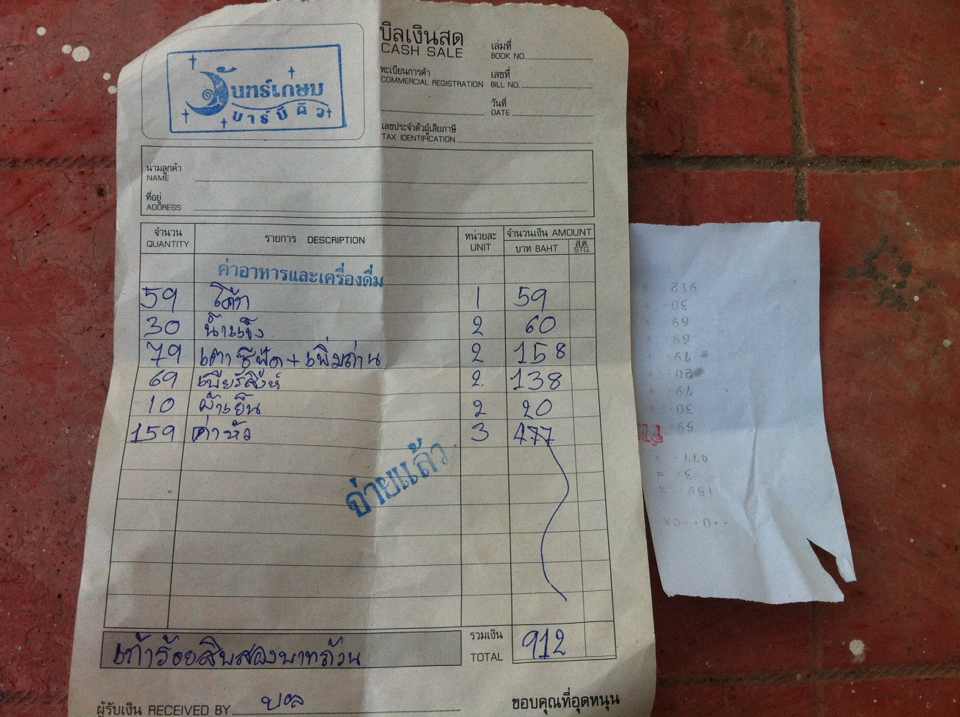 บิลเงินสด
CASH SALE
เล่มที่
BOOK NO.
ทะเบียนการค้า
COMMERCIAL REGISTRATION
เลขที่
BILL NO.
วันที่
DATE
เลขประจำตัวผู้เสียภาษี
TAX IDENTIFICATION
จันทร์เกษม
บาร์บีคิว
นามลูกค้า
NAME
ที่อยู่
ADDRESS
จำนวน รายการ DESCRIPTION หน่วยละ จำนวนเงิน AMOUNT
QUANTITY UNIT บาท BAHT สต. STG.
ค่าอาหารและเครื่องดื่ม
59 โค้ก 1 59
30 น้ำแข็ง 2 60
79 เตาซีฟู้ด + เพิ่มถ่าน 2 158
69 เบียร์สิงห์ 2 138
10 ผ้าเย็น 2 20
159 ค่าหัว 3 477
จ่ายแล้ว
เก้าร้อยสิบสองบาทถ้วน รวมเงิน 912
TOTAL
ผู้รับเงิน RECEIVED BY ขอบคุณที่อุดหนุน